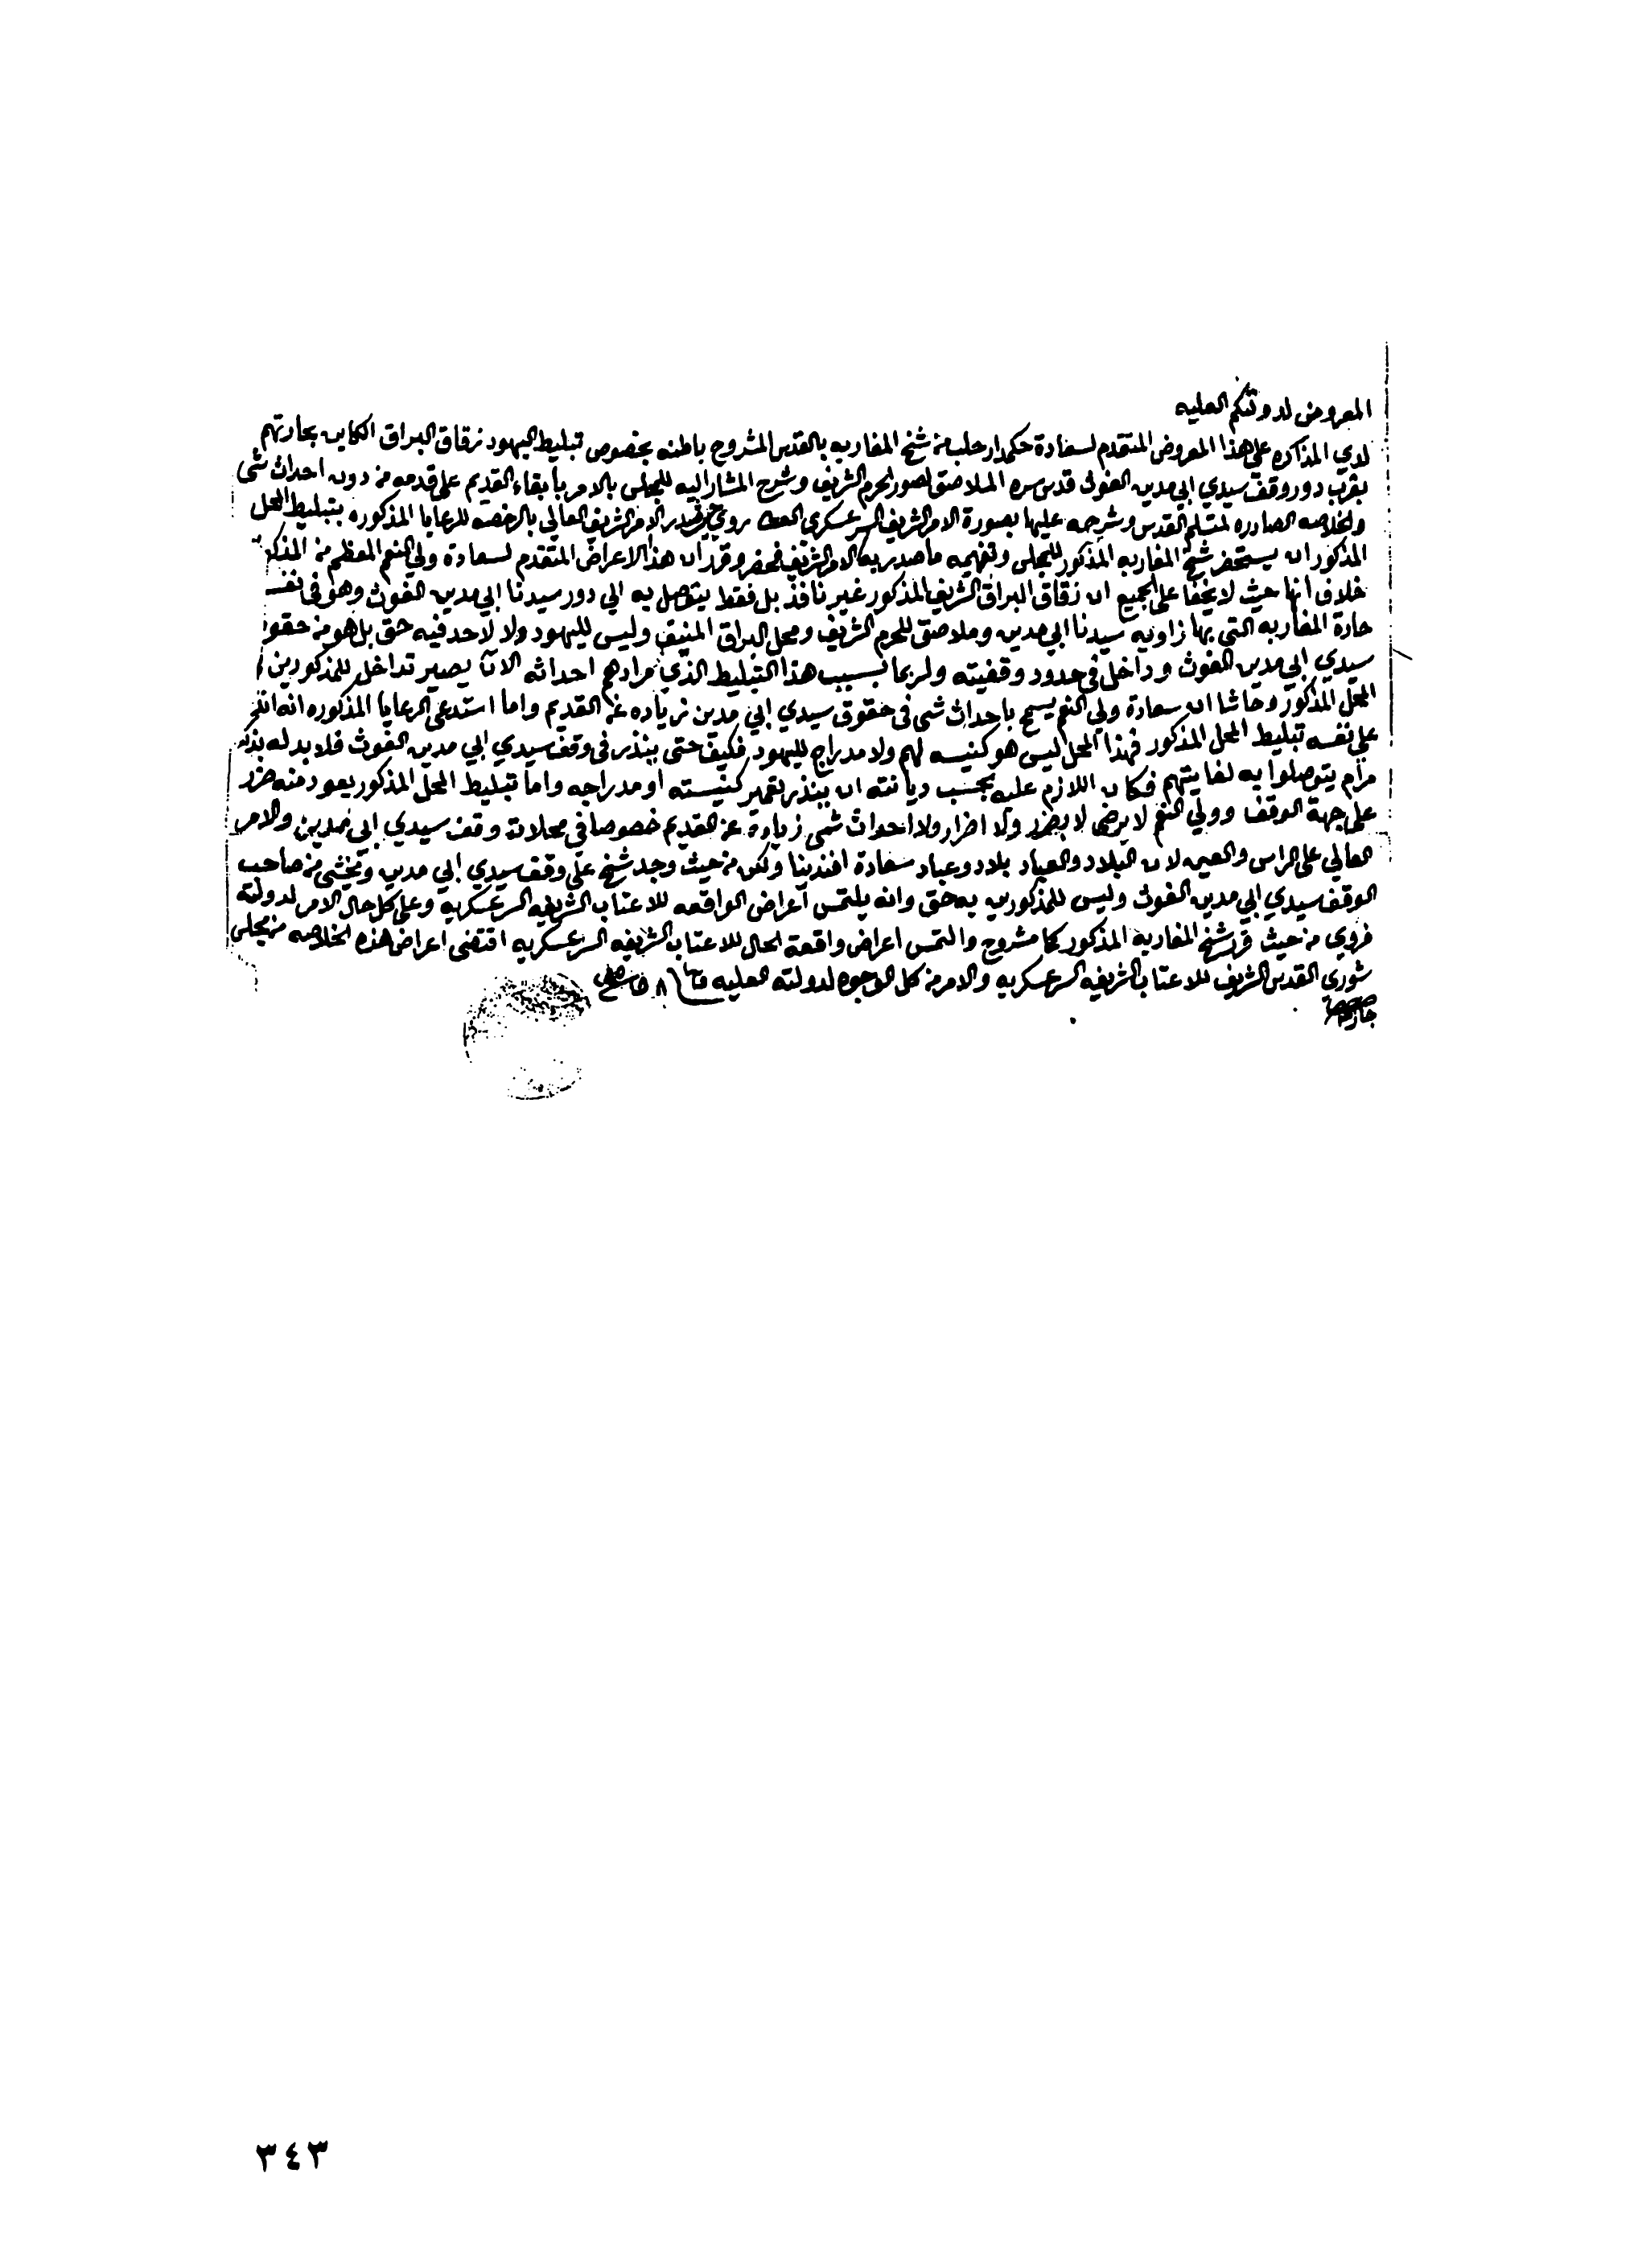 المعروض لدولتكم العليه
لدي المذاكره علي هذا المعروض المتقدم لسعادة حكمدار حلب من شيخ المغاربه بالقدس المشروح باطنه بخصوص تبليط اليهود زقاق البراق الكاين بحارتهم
بقرب دور وقف سيدي ابي مدين الغوث قدس سره الملاصق لصور الحرم الشريف وشرح المشار اليه للمجلس بالامر بأبقاء القديم علي قدمه من دون احداث شي
والخلاصه الصادره لمتسلم القدس وشرحه عليها بصورة الامر الشريف السرعسكري روي صدر الامر الشريف العالي بالرخصه للرعايا المذكوره بتبليط المحل
المذكور ان يستحضر شيخ المغاربه المذكور للمجلس وتفهيمه ما صدر به الامر الشريف فحضر وقرر ان هذا الاعراض المتقدم لسعادة ولي النعم المعظم من
خلاف انها حيث لا يخفا علي الجميع ان زقاق البراق الشريف المذكور غير نافذ بل فقط يتوصل به الي دور سيدنا ابي مدين الغوث وهو في نفس
حارة المغاربه التي بها زاوية سيدنا ابي مدين وملاصق للحرم الشريف ومحل البراق المنيف وليس لليهود ولا لاحد فيه حق بل هو من حقوق
سيدي ابي مدين الغوث وداخل في حدود وقفيته ولربما بسبب هذا التبليط الذي مرادهم احداثه الان يصير تداخل للمذكورين
المحل المذكور وحاشا ان سعادة ولي النعم يسمح باحداث شي في حقوق سيدي ابي مدين زياده عن القديم واما استدعي الرعايا المذكوره انه انذر
علي نفسه تبليط المحل المذكور فهذا المحل ليس هو كنيسه لهم ولا مدراج لليهود فكيف حتي بينذر في وقف سيدي ابي مدين الغوث فلا بد له بذلك
مرام يتوصلوا به لغايتهم فكان اللازم عليه بحسب ديانته ان بينذر بتعمير كنيسته او مدراجه واما تبليط المحل المذكور يعود منه ضرر
علي جهة الوقف وولي النعم لا يرضي لا بضرر ولا اضرار ولا احداث شي زيادة عن القديم خصوصا في محلات وقف سيدي ابي مدين والامر
العالي علي الراس والعين لان البلاد والعباد بلاد وعباد سعادة افندينا ولكن من حيث وجد شيخ علي وقف سيدي ابي مدين ويخشي من صاحب
الوقف سيدي ابي مدين الغوث وليس للمذكورين به حق وانه يلتمس اعراض الواقعه للاعتاب الشريفه السرعسكريه وعلي كل حال الامر لدولته
فروي من حيث قرر شيخ المغاربه المذكور كما مشروح والتمس اعراض واقعة الحال للاعتاب الشريفه السرعسكريه اقتضي اعراض هذه الخلاصه من مجلس
شوري القدس الشريف للاعتاب الشريفه السرعسكريه والامر من كل الوجوه لدولته العليه
٣٤٣